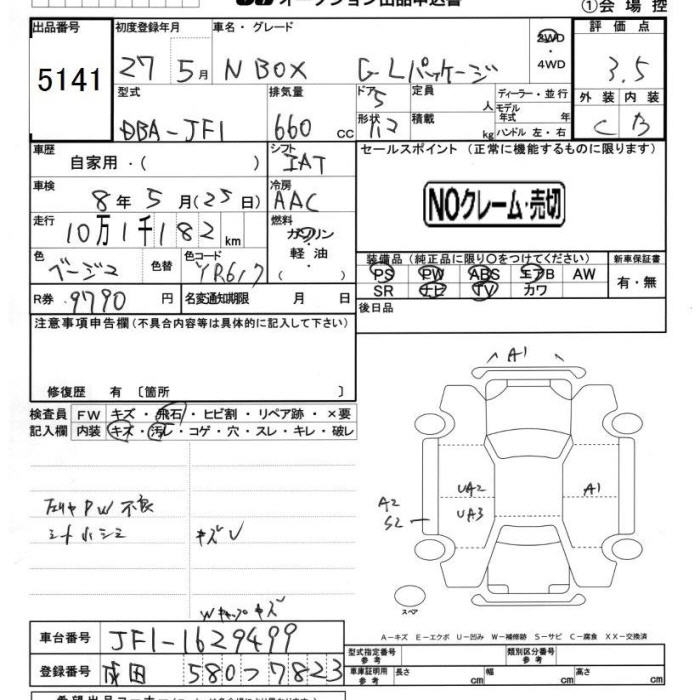 オークション出品申込書
①会場控
出品番号 初度登録年月 車名・グレード 評価点
5141 27 5月 N BOX G-Lパッケージ 2WD・4WD 3.5
型式 排気量 ドア 定員 ディーラー・並行 外装 内装
DBA-JF1 660 cc 5 人 モデル年式 年式 C B
形状 積載 kg ハンドル 左・右
車歴 シフト セールスポイント (正常に機能するものに限ります)
自家用・( ) IAT
車検 冷房
8年5月(25日) AAC NOクレーム・売切
走行 燃料
10万1千182km ガソリン・軽油・( )
色 色替 色コード 装備品(純正品に限り○をつけてください) 新車保証書
ベージュ YR617 PS PW ABS エアB AW 有・無
SR ナビ TV カワ
R券 9790円 名変通知期限 月 日 後日品
注意事項申告欄(不具合内容等は具体的に記入して下さい)
修復歴 有 〔箇所 〕
検査員 FW キズ・飛石・ヒビ割・リペア跡・×要
記入欄 内装 キズ・汚レ・コゲ・穴・スレ・キレ・破レ
PW 不良
キズ
キズ
A1
UA2 A1
A2 UA3
S2
スペア
A-キズ E-エクボ U-凹み W-補修跡 S-サビ C-腐食 XX-交換済
車台番号 JF1-1629499
型式指定番号 参考 類別区分番号 参考
登録番号 成田 580 つ 7823
車庫証明用 参考 長さ cm 幅 cm 高さ cm